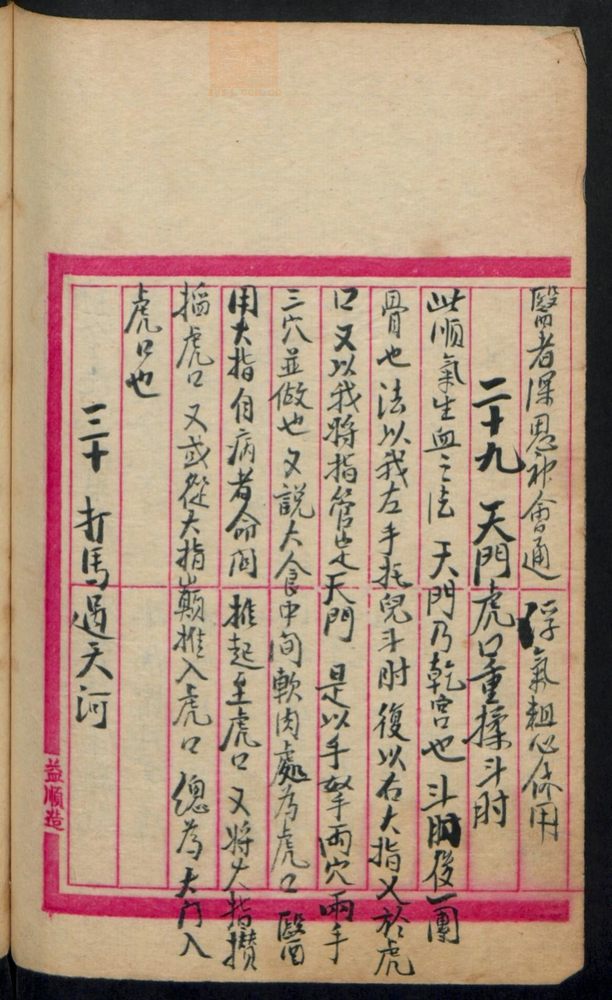 醫者深思神會通 浮氣粗心休用
二十九 天門虎口重揉斗肘
此順氣生血之法 天門乃乾宮也 斗肘後一團
骨也 法以我左手托兒斗肘 復以右大指叉於虎
口 又以我將指管定天門 是以手拏兩穴 兩手
三穴並做也 又說大食中间軟肉處為虎口 醫
用大指自病者命関 推起至虎口 又將大指攢
掐虎口 又或從大指巔推入虎口 總為天門入
虎口也
三十 打馬過天河
益順造